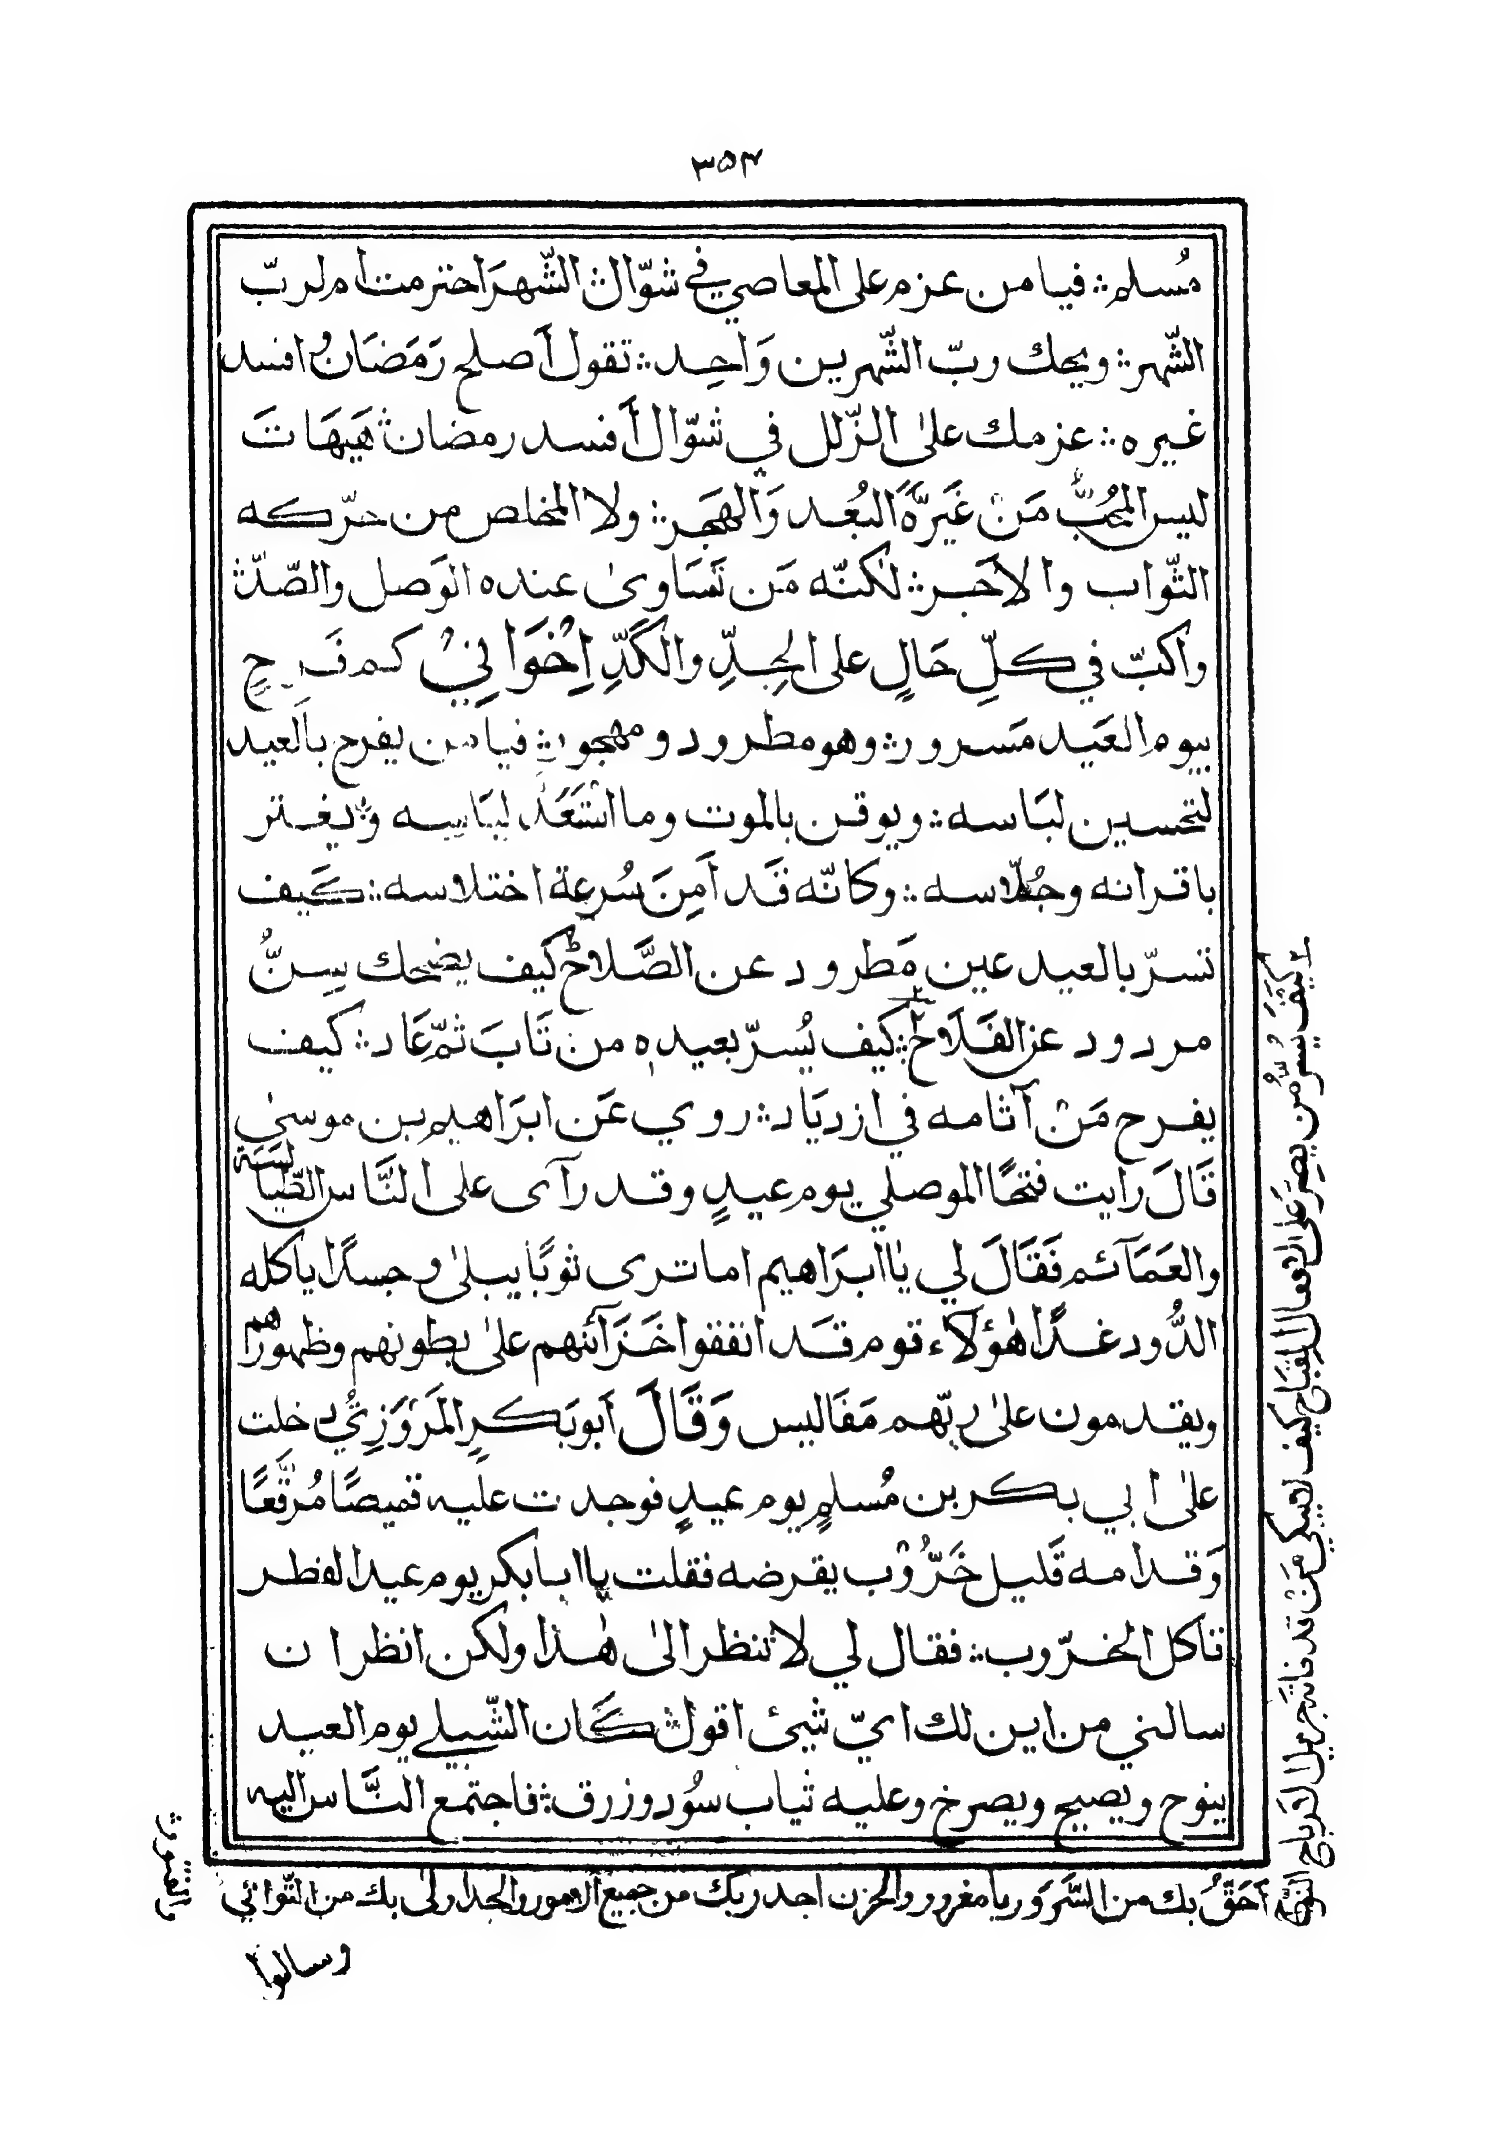 ٣٥٣
مُسلم ؞ فيا من عزم على المعاصي في شوّال ؞ الشّهرَ احترمت أم لربّ
الشّهر ؞ ويحك ربّ الشّهرين وَاحِد ؞ تقول أَصلح رَمَضَانُ وافسد
غيره ؞ عزمك علىٰ الزّلل في شوّال أَفسد رمضان ؞ هَيهَاتَ
ليس المُحِبُّ مَنْ غَيَّرَهُ البُعد وَالهَجر ؞ ولا المخلص من حرّكه
الثّواب والأَجر ؞ لٰكنّه مَن تَسَاوىٰ عنده الوَصل والصّدّ ؞
وأكبّ في كلِّ حَالٍ على الجِدِّ والكَدِّ إِخْوَانِيْ كم فَرِحٍ
بيوم العَيد مَسرور ؞ وهو مطرود ومهجور ؞ فيا من يفرح بالعيد
لتحسين لبَاسه ؞ ويوقن بالموت وما اسْتَعَدَّ لبَاسِه ؞ ويغتر
باقرانه وجُلّاسه ؞ وكانّه قَد أَمِنَ سُرعة اختلاسه ؞ كَيف
تسرّ بالعيد عين مَطرود عن الصَّلاح ؞ كيف يضحك سِنٌّ
مردود عن الفَلَاح ؞ كيف يُسرّ بعيده من تَابَ ثمّ عَاد ؞ كيف
يفرح مَنْ آثامه في ازديَاد ؞ روي عَن ابرَاهيم بن موسىٰ
قَالَ رايت فتحًا الموصلي يوم عيدٍ وقد رآى على النَّاس الطّيالسَة
والعَمَآئم فَقَالَ لي يٰا ابرَاهيم اما ترى ثوبًا يبلىٰ وجسدًا ياكله
الدُّود غدًا هٰؤلَاء قوم قَد انفقوا خَزَآئنهم علىٰ بطونهم وظهورهم
ويقدمون علىٰ ربّهم مَفَاليس وَقَالَ أبو بَكرٍ المَرْوَزِيُّ دخلت
علىٰ ابي بكر بن مُسلمٍ يوم عيدٍ فوجدت عليه قميصًا مُرقَّعًا
وَقدامه قَليل خَرُّوْب يقرضه فقلت يا ابا بكر يوم عيد الفطر
تاكل الخرّوب ؞ فقال لي لا تنظر الىٰ هٰذا ولكن انظر ان
سالني من اين لك ايّ شيئ اقول ؞ كَان الشّبلي يوم العيد
ينوح ويصيح ويصرخ وعليه ثياب سوُد وزرق ؞ فاجتمع النَّاس اليه
كَيفَ يُسرُّ من يُصرّ على الافعال القبَاح كيف لا يبكي مَنْ قد فاته جزيل الارباح النوح
أحَقُّ بك من السَّرَور يا مغرور والحزن اجدر بك من جميع الامور والجد اولىٰ بك من التّوانِي
والقصور
وسالوا